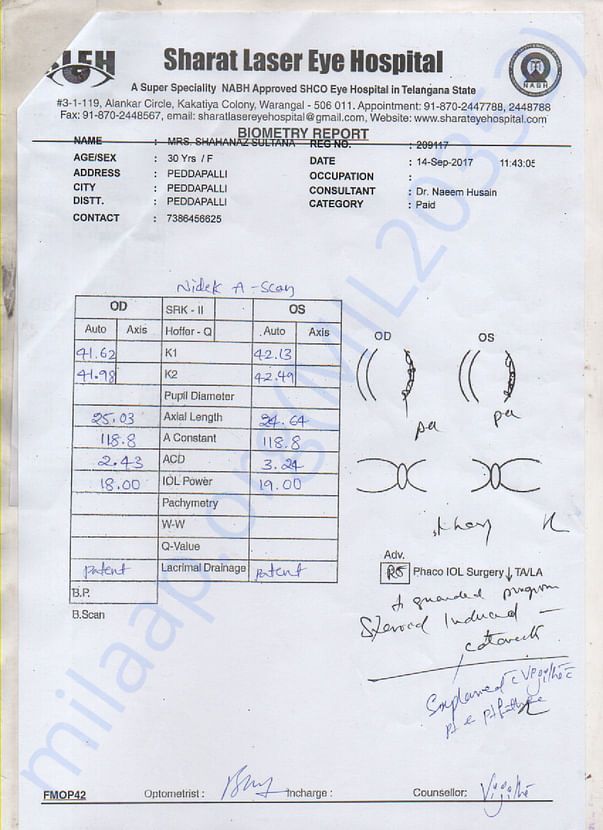 Sharat Laser Eye Hospital
NABH
A Super Speciality NABH Approved SHCO Eye Hospital in Telangana State
#3-1-119, Alankar Circle, Kakatiya Colony, Warangal - 506 011. Appointment: 91-870-2447788, 2448788
Fax: 91-870-2448567, email: sharatlasereyehospital@gmail.com, Website: www.sharateyehospital.com
BIOMETRY REPORT
NAME : MRS. SHAHANAZ SULTANA REG NO. : 209117
AGE/SEX : 30 Yrs / F DATE : 14-Sep-2017 11:43:05
ADDRESS : PEDDAPALLI OCCUPATION :
CITY : PEDDAPALLI CONSULTANT : Dr. Naeem Husain
DISTT. : PEDDAPALLI CATEGORY : Paid
CONTACT : 7386456625
Nidek A-Scan
OD SRK - II OS
Auto Axis Hoffer - Q Auto Axis
41.62 K1 42.13
41.98 K2 42.49
Pupil Diameter
25.03 Axial Length 24.64
118.8 A Constant 118.8
2.43 ACD 3.24
18.00 IOL Power 19.00
Pachymetry
W-W
Q-Value
patent Lacrimal Drainage patent
B.P.
B.Scan
OD OS
Adv.
Phaco IOL Surgery ↓ TA/LA
guarded
Steroid Induced -
cataract
Explained
FMOP42 Optometrist : Incharge : Counsellor:
milaap.org(MIL203553)